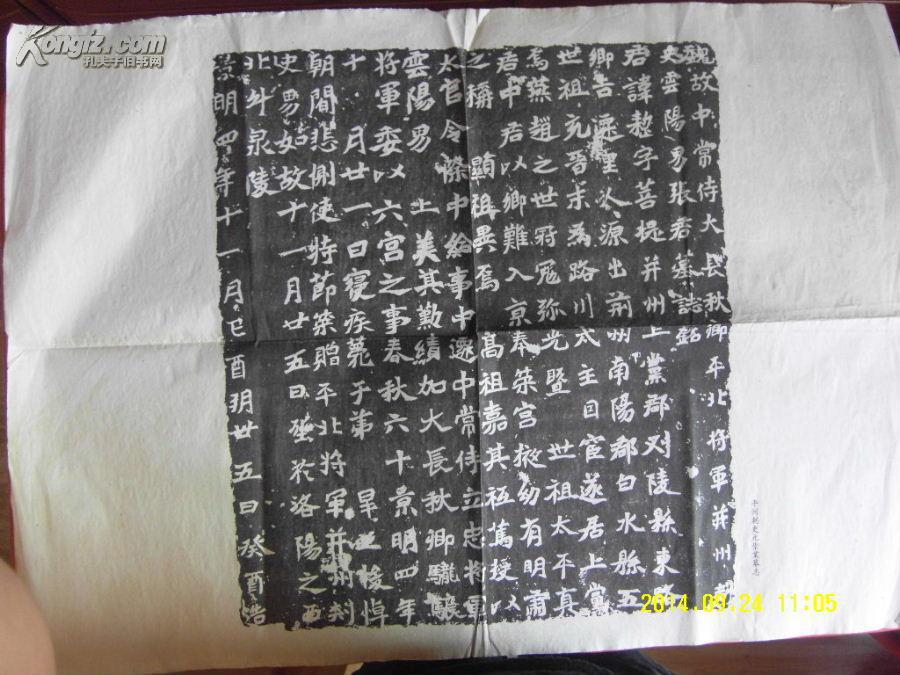 魏故中常侍大長秋卿平北將軍并州刺
史雲陽男張君墓誌銘
君諱整字菩提并州上黨郡刈陵縣東
鄉吉遷里人源出荊州南陽郡白水縣五
世祖充晉末為路川太主因宦遂居上黨
焉燕趙之世冠冕弥光暨 世祖太平真
君中君以鄉難入京奉策宮掖幼有明肅
之稱 顯祖異焉 高祖嘉其祗篤授以
太官令除中給事中遷中常侍立忠將軍
雲陽男 上美其勤績加大長秋卿驍驤
將軍委以六宮之事春秋六十景明四年
十 月廿一日寢疾薨于第 旱上悛悼
朝間悲惻使持節策贈平北將軍并州刺
史男如故十一月廿五日塟於洛陽之西
北斗泉陵
景明四年十一月己酉玥廿五日癸酉造
平州刺史元
墓志
Kongfz.com
孔夫子旧书网
2014.09.24 11:05